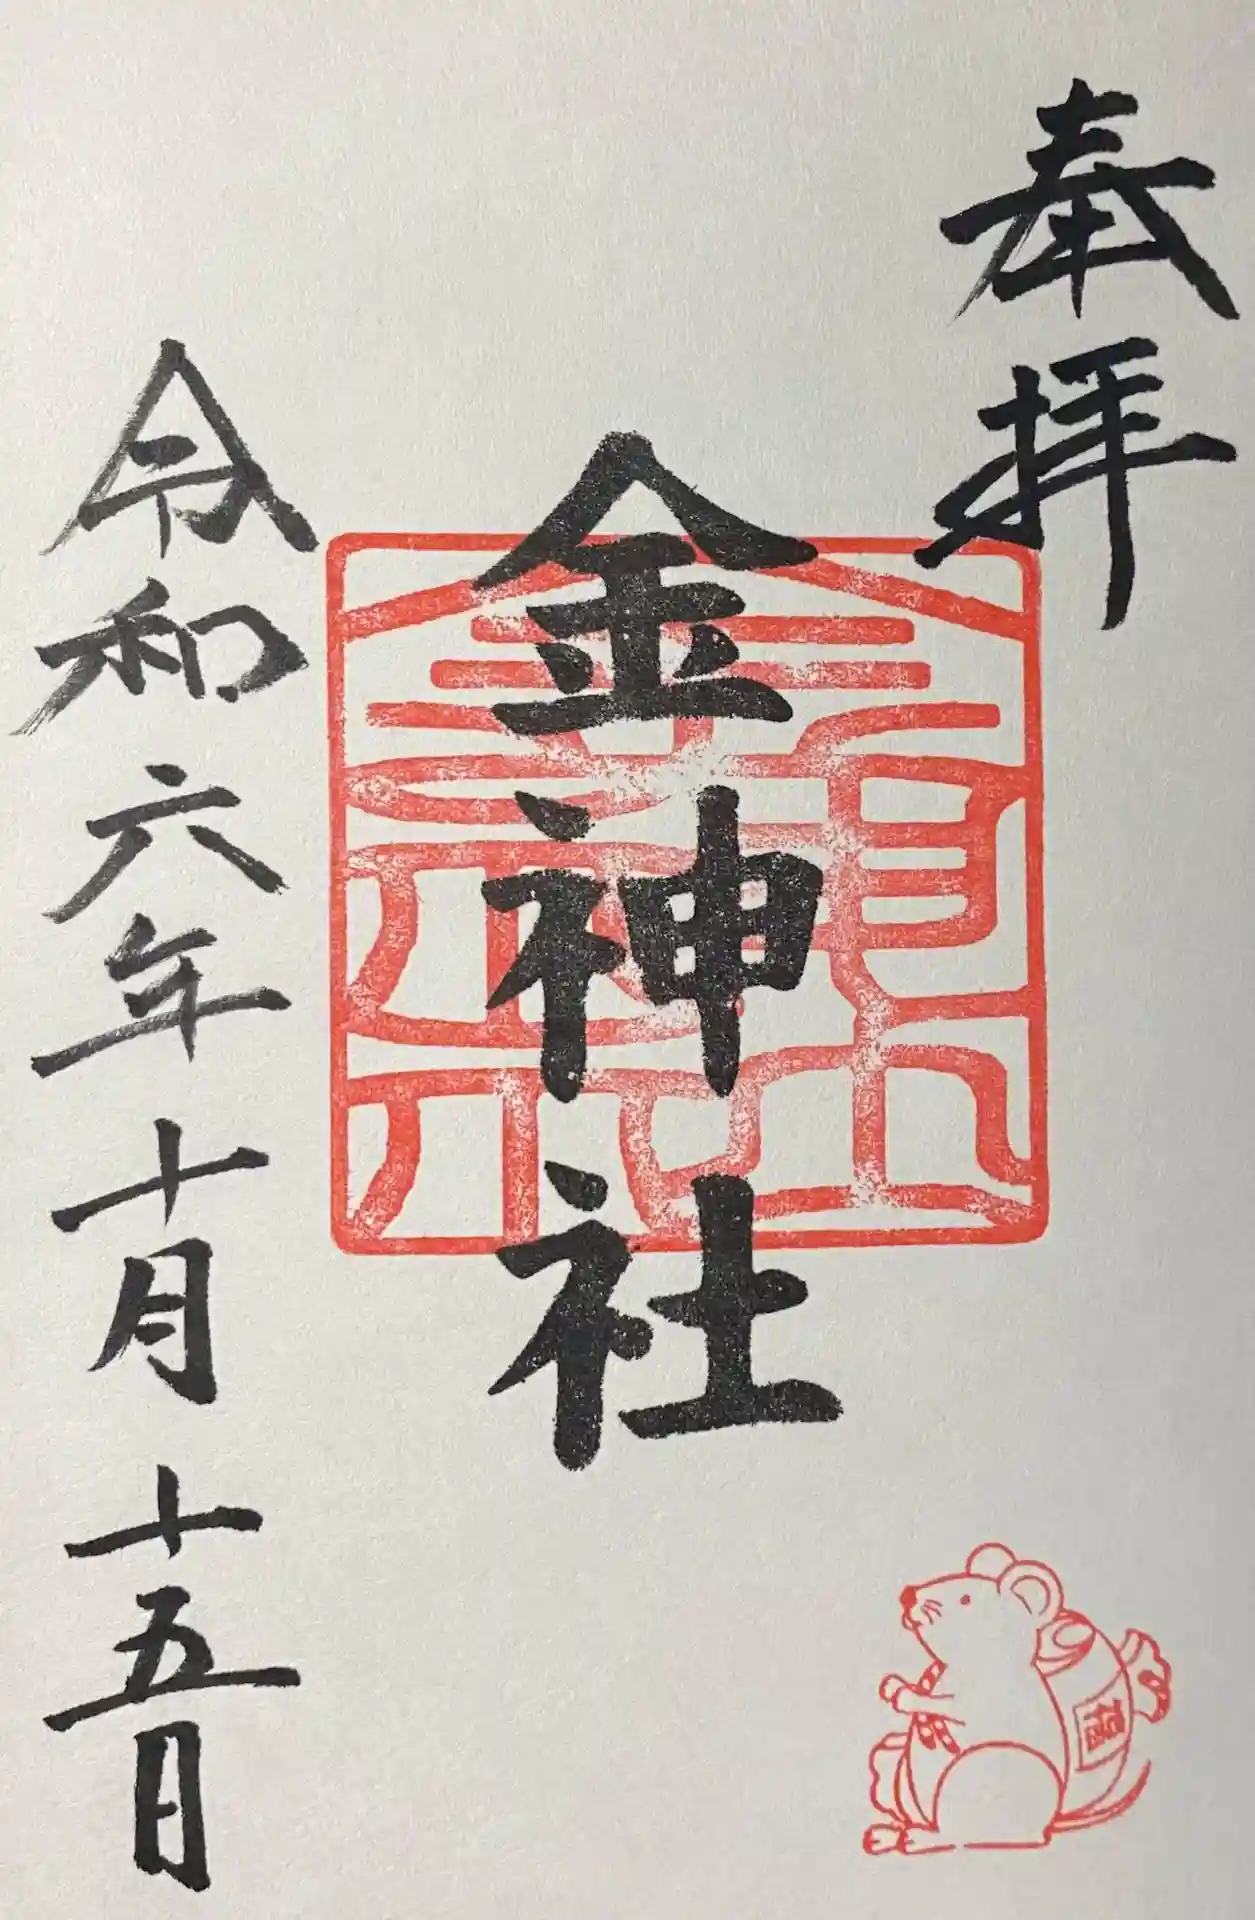 奉拝
金神社
令和六年十月十五日
福